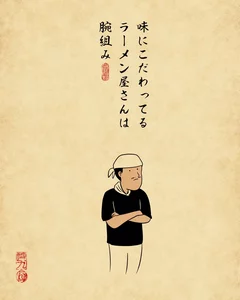 味にこだわってる
ラーメン屋さんは
腕組み